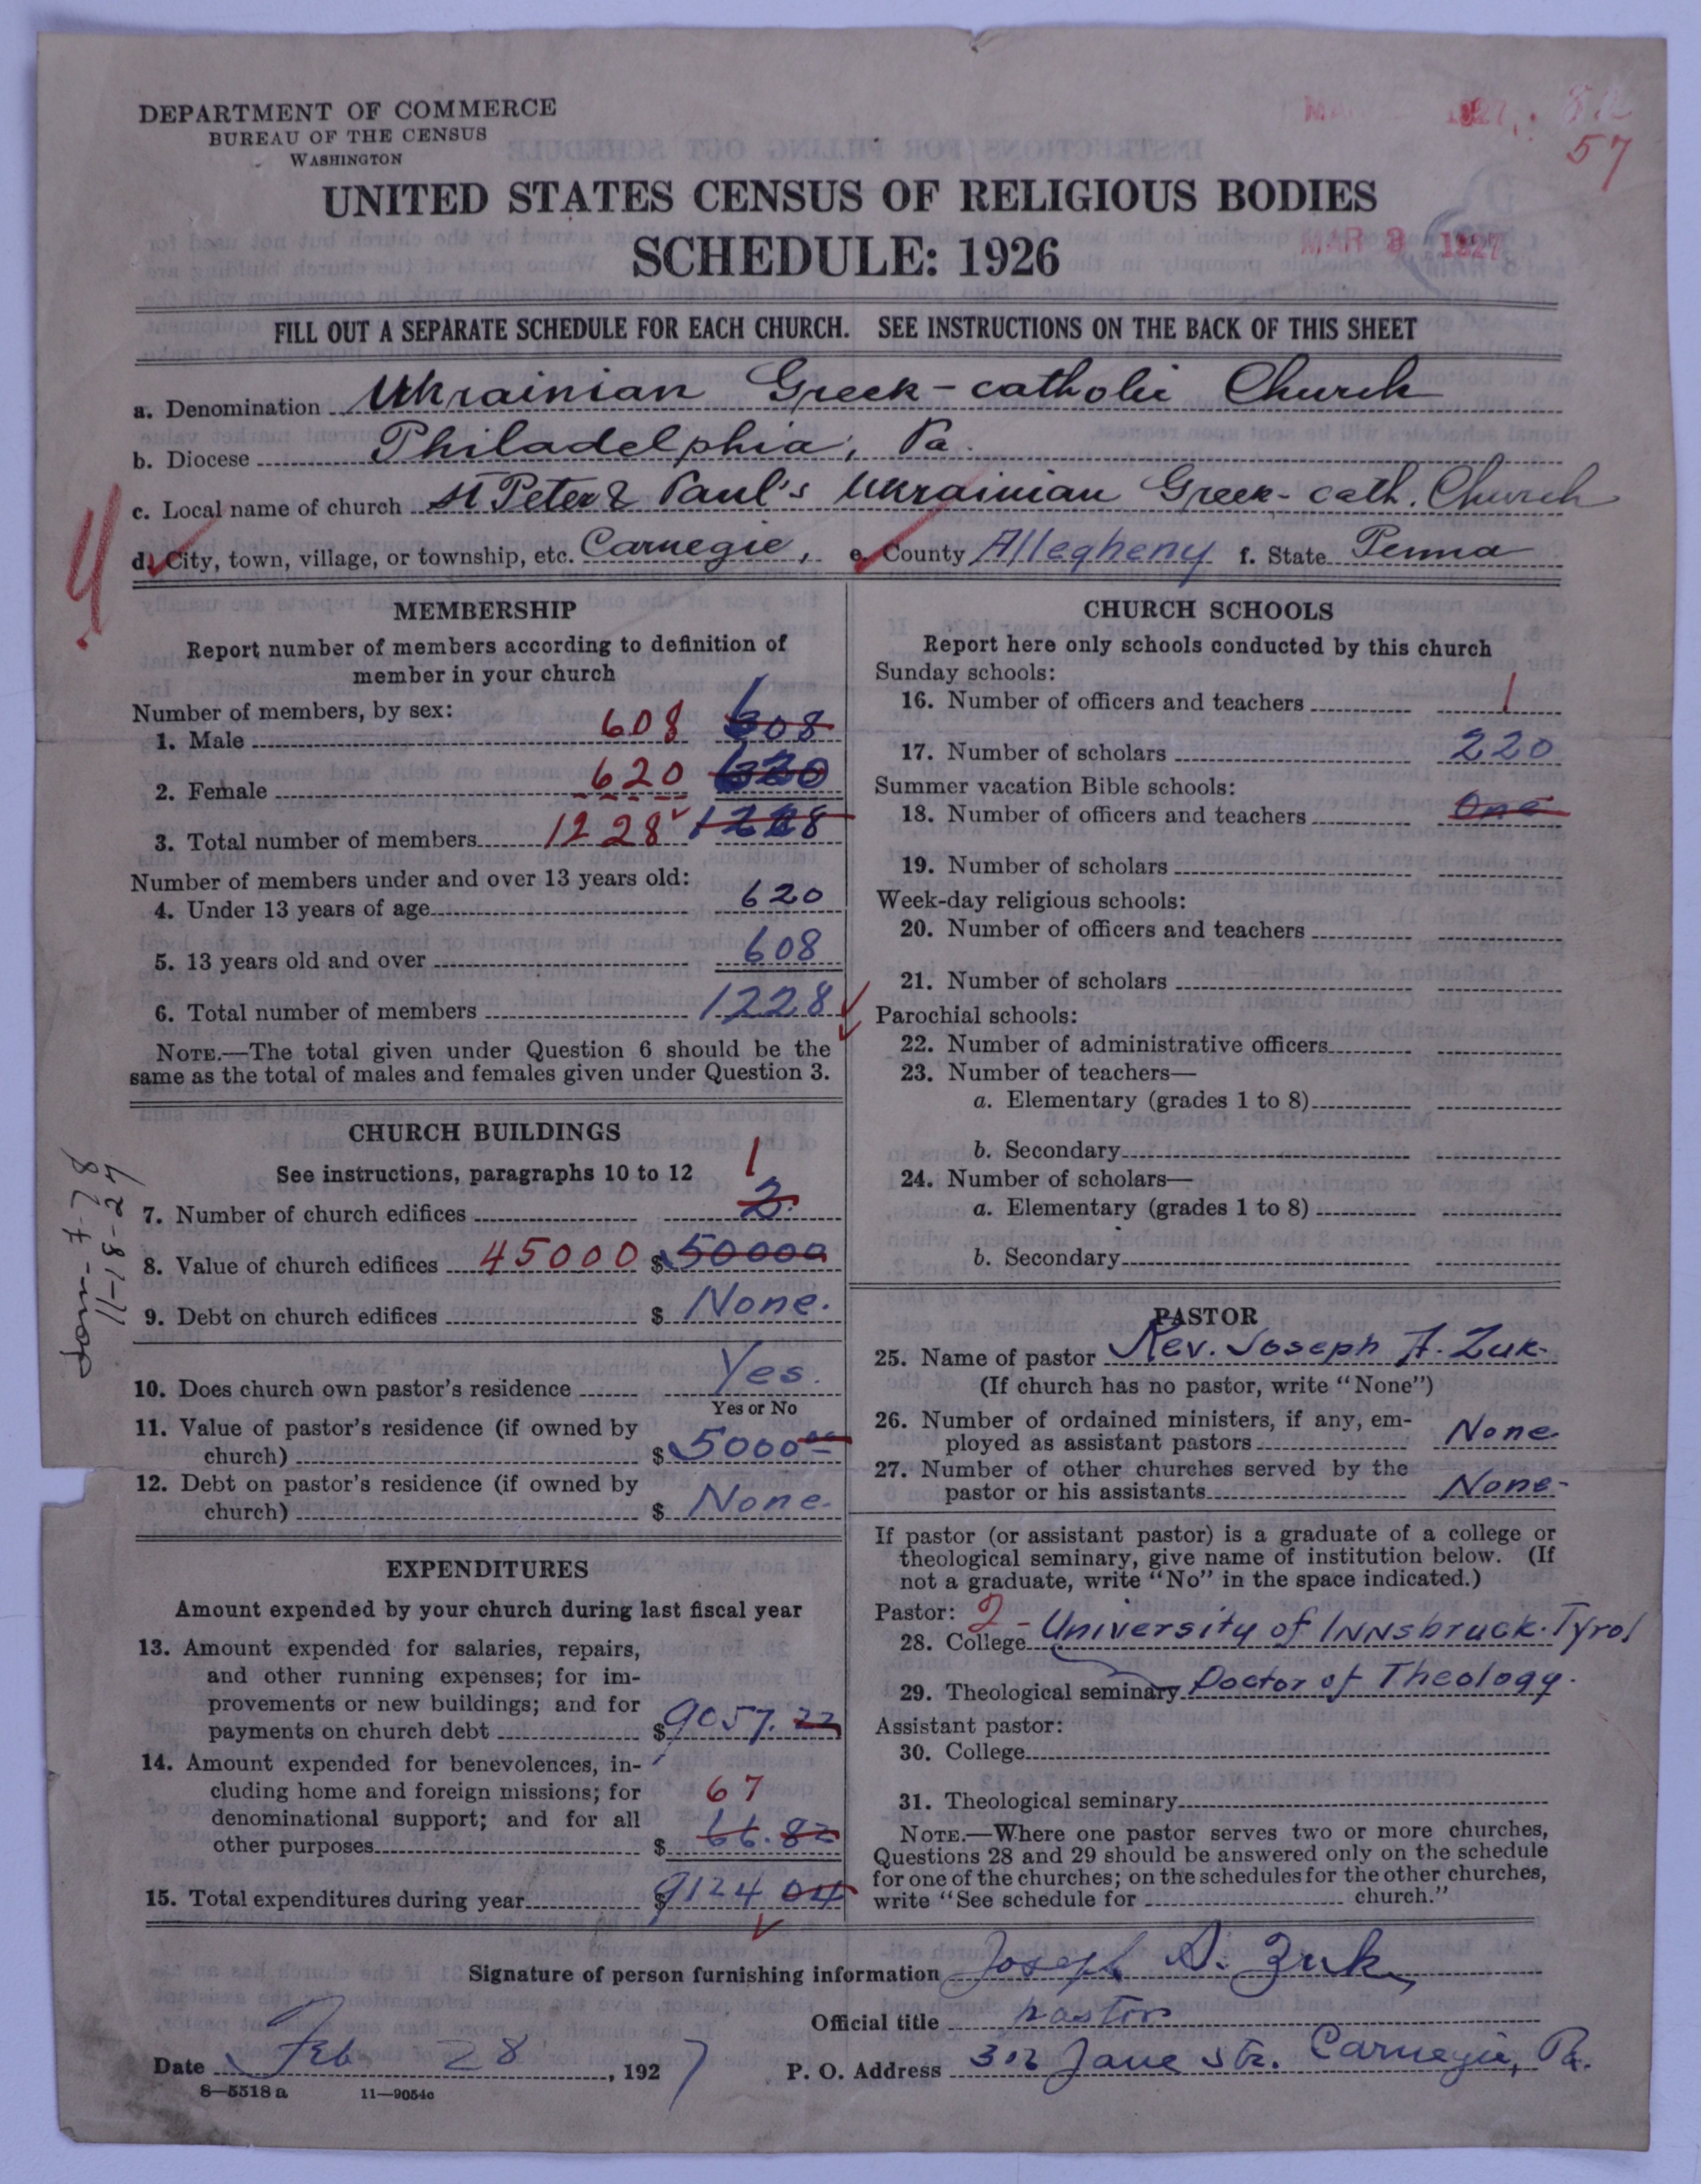 DEPARTMENT OF COMMERCE
BUREAU OF THE CENSUS
WASHINGTON
57
UNITED STATES CENSUS OF RELIGIOUS BODIES
SCHEDULE: 1926
MAR 3 1927
FILL OUT A SEPARATE SCHEDULE FOR EACH CHURCH. SEE INSTRUCTIONS ON THE BACK OF THIS SHEET
a. Denomination Ukrainian Greek-catholic Church
b. Diocese Philadelphia, Pa.
c. Local name of church St Peter & Paul's Ukrainian Greek-cath. Church
d. City, town, village, or township, etc. Carnegie, e. County Allegheny f. State Penna
4
MEMBERSHIP
Report number of members according to definition of
member in your church
Number of members, by sex:
1. Male 608 608
2. Female 620 620
3. Total number of members 1228 1228
Number of members under and over 13 years old:
4. Under 13 years of age 620
5. 13 years old and over 608
6. Total number of members 1228
NOTE.—The total given under Question 6 should be the
same as the total of males and females given under Question 3.
CHURCH BUILDINGS
See instructions, paragraphs 10 to 12
1
7. Number of church edifices 2.
8. Value of church edifices 45000 $ 50000
9. Debt on church edifices $ None.
10. Does church own pastor's residence Yes.
Yes or No
11. Value of pastor's residence (if owned by
church) $ 5000
12. Debt on pastor's residence (if owned by
church) $ None.
EXPENDITURES
Amount expended by your church during last fiscal year
13. Amount expended for salaries, repairs,
and other running expenses; for im-
provements or new buildings; and for
payments on church debt $ 9057.22
14. Amount expended for benevolences, in-
cluding home and foreign missions; for 67
denominational support; and for all
other purposes $ 66.82
15. Total expenditures during year $ 9124 04
CHURCH SCHOOLS
Report here only schools conducted by this church
Sunday schools:
16. Number of officers and teachers 1
17. Number of scholars 220
Summer vacation Bible schools:
18. Number of officers and teachers One
19. Number of scholars
Week-day religious schools:
20. Number of officers and teachers
21. Number of scholars
Parochial schools:
22. Number of administrative officers
23. Number of teachers—
a. Elementary (grades 1 to 8)
b. Secondary
24. Number of scholars—
a. Elementary (grades 1 to 8)
b. Secondary
PASTOR
25. Name of pastor Rev. Joseph A. Zuk.
(If church has no pastor, write "None")
26. Number of ordained ministers, if any, em-
ployed as assistant pastors None
27. Number of other churches served by the
pastor or his assistants None-
If pastor (or assistant pastor) is a graduate of a college or
theological seminary, give name of institution below. (If
not a graduate, write "No" in the space indicated.)
Pastor: 2
28. College University of Innsbruck. Tyrol
29. Theological seminary Doctor of Theology.
Assistant pastor:
30. College
31. Theological seminary
NOTE.—Where one pastor serves two or more churches,
Questions 28 and 29 should be answered only on the schedule
for one of the churches; on the schedules for the other churches,
write "See schedule for church."
Signature of person furnishing information Joseph A. Zuk,
Official title pastor
Date Feb 28, 1927 P. O. Address 312 Jane Str. Carnegie, Pa.
8—5518a 11—9054c